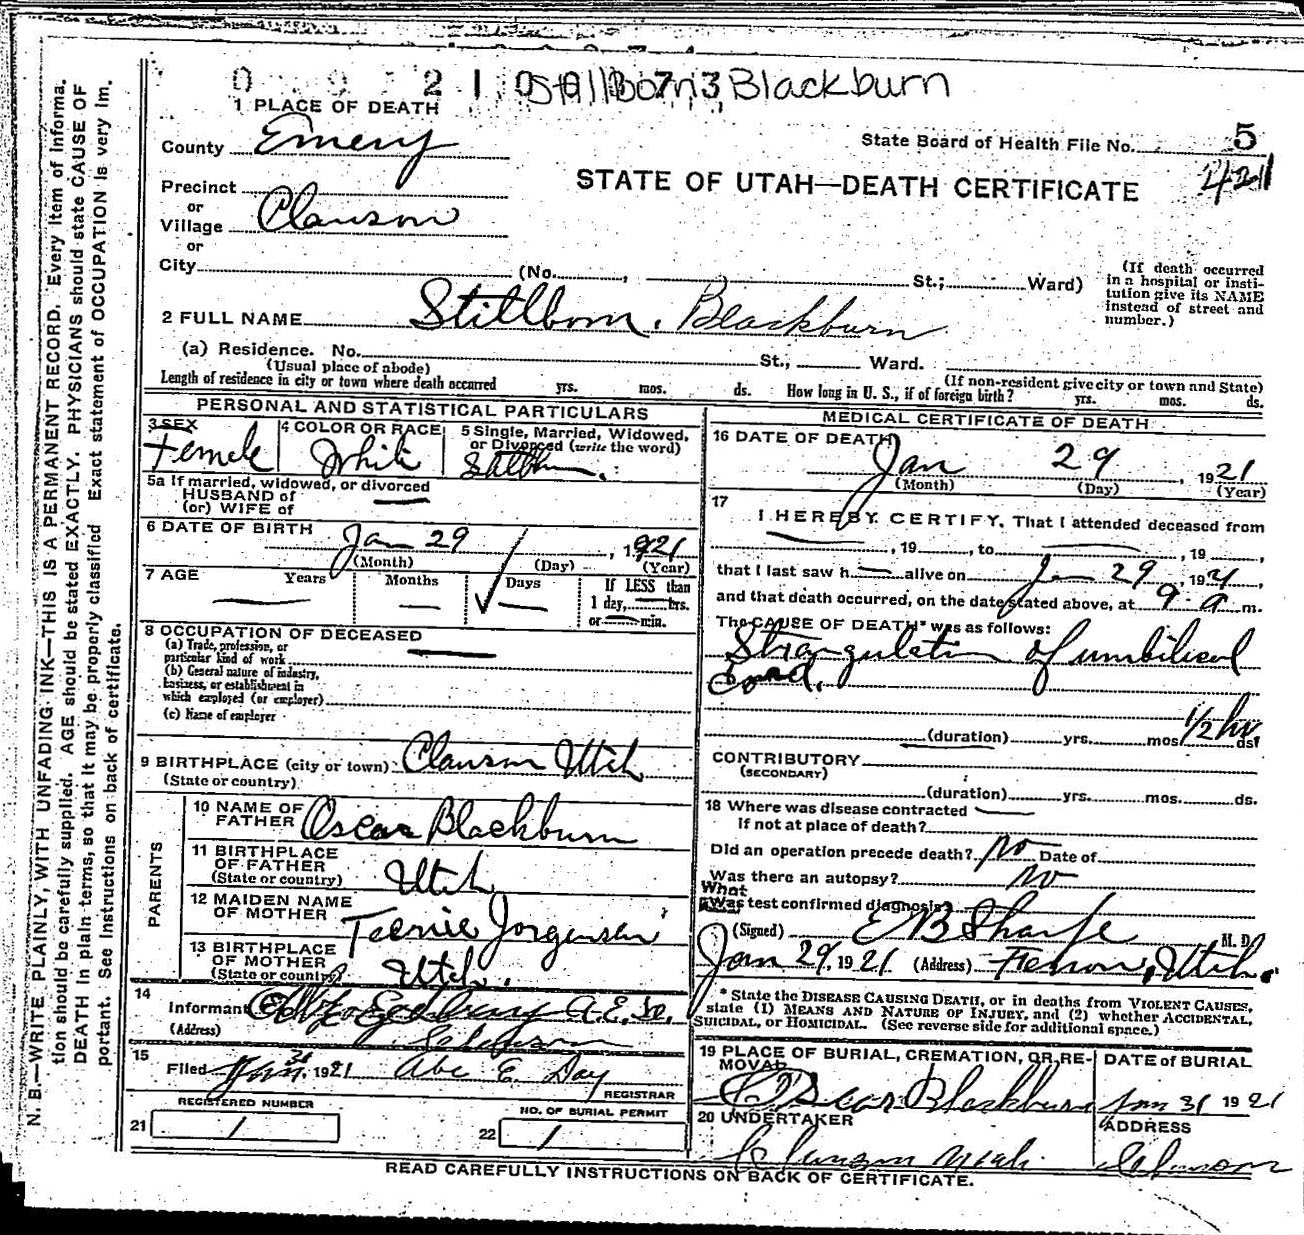 0 9 21 0 0 1 7 3 Stillborn, Blackburn
1 PLACE OF DEATH
County Emery
State Board of Health File No. 5
421
STATE OF UTAH—DEATH CERTIFICATE
Precinct
or
Village Clawson
or
City (No. , St.; Ward)
(If death occurred in a hospital or institution give its NAME instead of street and number.)
2 FULL NAME Stillborn. Blackburn
(a) Residence. No. St., Ward.
(Usual place of abode) (If non-resident give city or town and State)
Length of residence in city or town where death occurred yrs. mos. ds. How long in U. S., if of foreign birth? yrs. mos. ds.
PERSONAL AND STATISTICAL PARTICULARS
3 SEX Female
4 COLOR OR RACE White
5 Single, Married, Widowed, or Divorced (write the word) Stillborn.
5a If married, widowed, or divorced
HUSBAND of
(or) WIFE of
6 DATE OF BIRTH Jan 29, 1921
(Month) (Day) (Year)
7 AGE Years Months Days If LESS than
1 day, hrs.
or min.
8 OCCUPATION OF DECEASED
(a) Trade, profession, or
particular kind of work
(b) General nature of industry,
business, or establishment in
which employed (or employer)
(c) Name of employer
9 BIRTHPLACE (city or town) Clawson Utah
(State or country)
PARENTS
10 NAME OF FATHER Oscar Blackburn
11 BIRTHPLACE OF FATHER
(State or country) Utah
12 MAIDEN NAME OF MOTHER Teenie Jorgensen
13 BIRTHPLACE OF MOTHER
(State or country) Utah.
14
Informant
(Address) Clawson
15
Filed Jan 31 1921 Abe E. Day
REGISTRAR
REGISTERED NUMBER
21 1
NO. OF BURIAL PERMIT
22 1
MEDICAL CERTIFICATE OF DEATH
16 DATE OF DEATH
Jan 29, 1921
(Month) (Day) (Year)
17
I HEREBY CERTIFY, That I attended deceased from
, 19 , to , 19 ,
that I last saw h alive on Jan 29, 1921,
and that death occurred, on the date stated above, at 9 a m.
The CAUSE OF DEATH* was as follows:
Strangulation of umbilical
Cord.
(duration) yrs. mos. 1/2 hr ds.
CONTRIBUTORY
(SECONDARY)
(duration) yrs. mos. ds.
18 Where was disease contracted
if not at place of death?
Did an operation precede death? No Date of
Was there an autopsy? No
What test confirmed diagnosis?
(Signed) E B Sharpe M. D.
Jan 29, 1921 (Address) Ferron, Utah.
* State the DISEASE CAUSING DEATH, or in deaths from VIOLENT CAUSES,
state (1) MEANS AND NATURE OF INJURY, and (2) whether ACCIDENTAL,
SUICIDAL, or HOMICIDAL. (See reverse side for additional space.)
19 PLACE OF BURIAL, CREMATION, OR REMOVAL
Oscar Blackburn
DATE of BURIAL
Jan 31 1921
20 UNDERTAKER
Clawson Utah.
ADDRESS
Clawson
READ CAREFULLY INSTRUCTIONS ON BACK OF CERTIFICATE.
N. B.—WRITE PLAINLY, WITH UNFADING INK—THIS IS A PERMANENT RECORD. Every item of informa-
tion should be carefully supplied. AGE should be stated EXACTLY. PHYSICIANS should state CAUSE OF
DEATH in plain terms, so that it may be properly classified Exact statement of OCCUPATION is very im-
portant. See instructions on back of certificate.